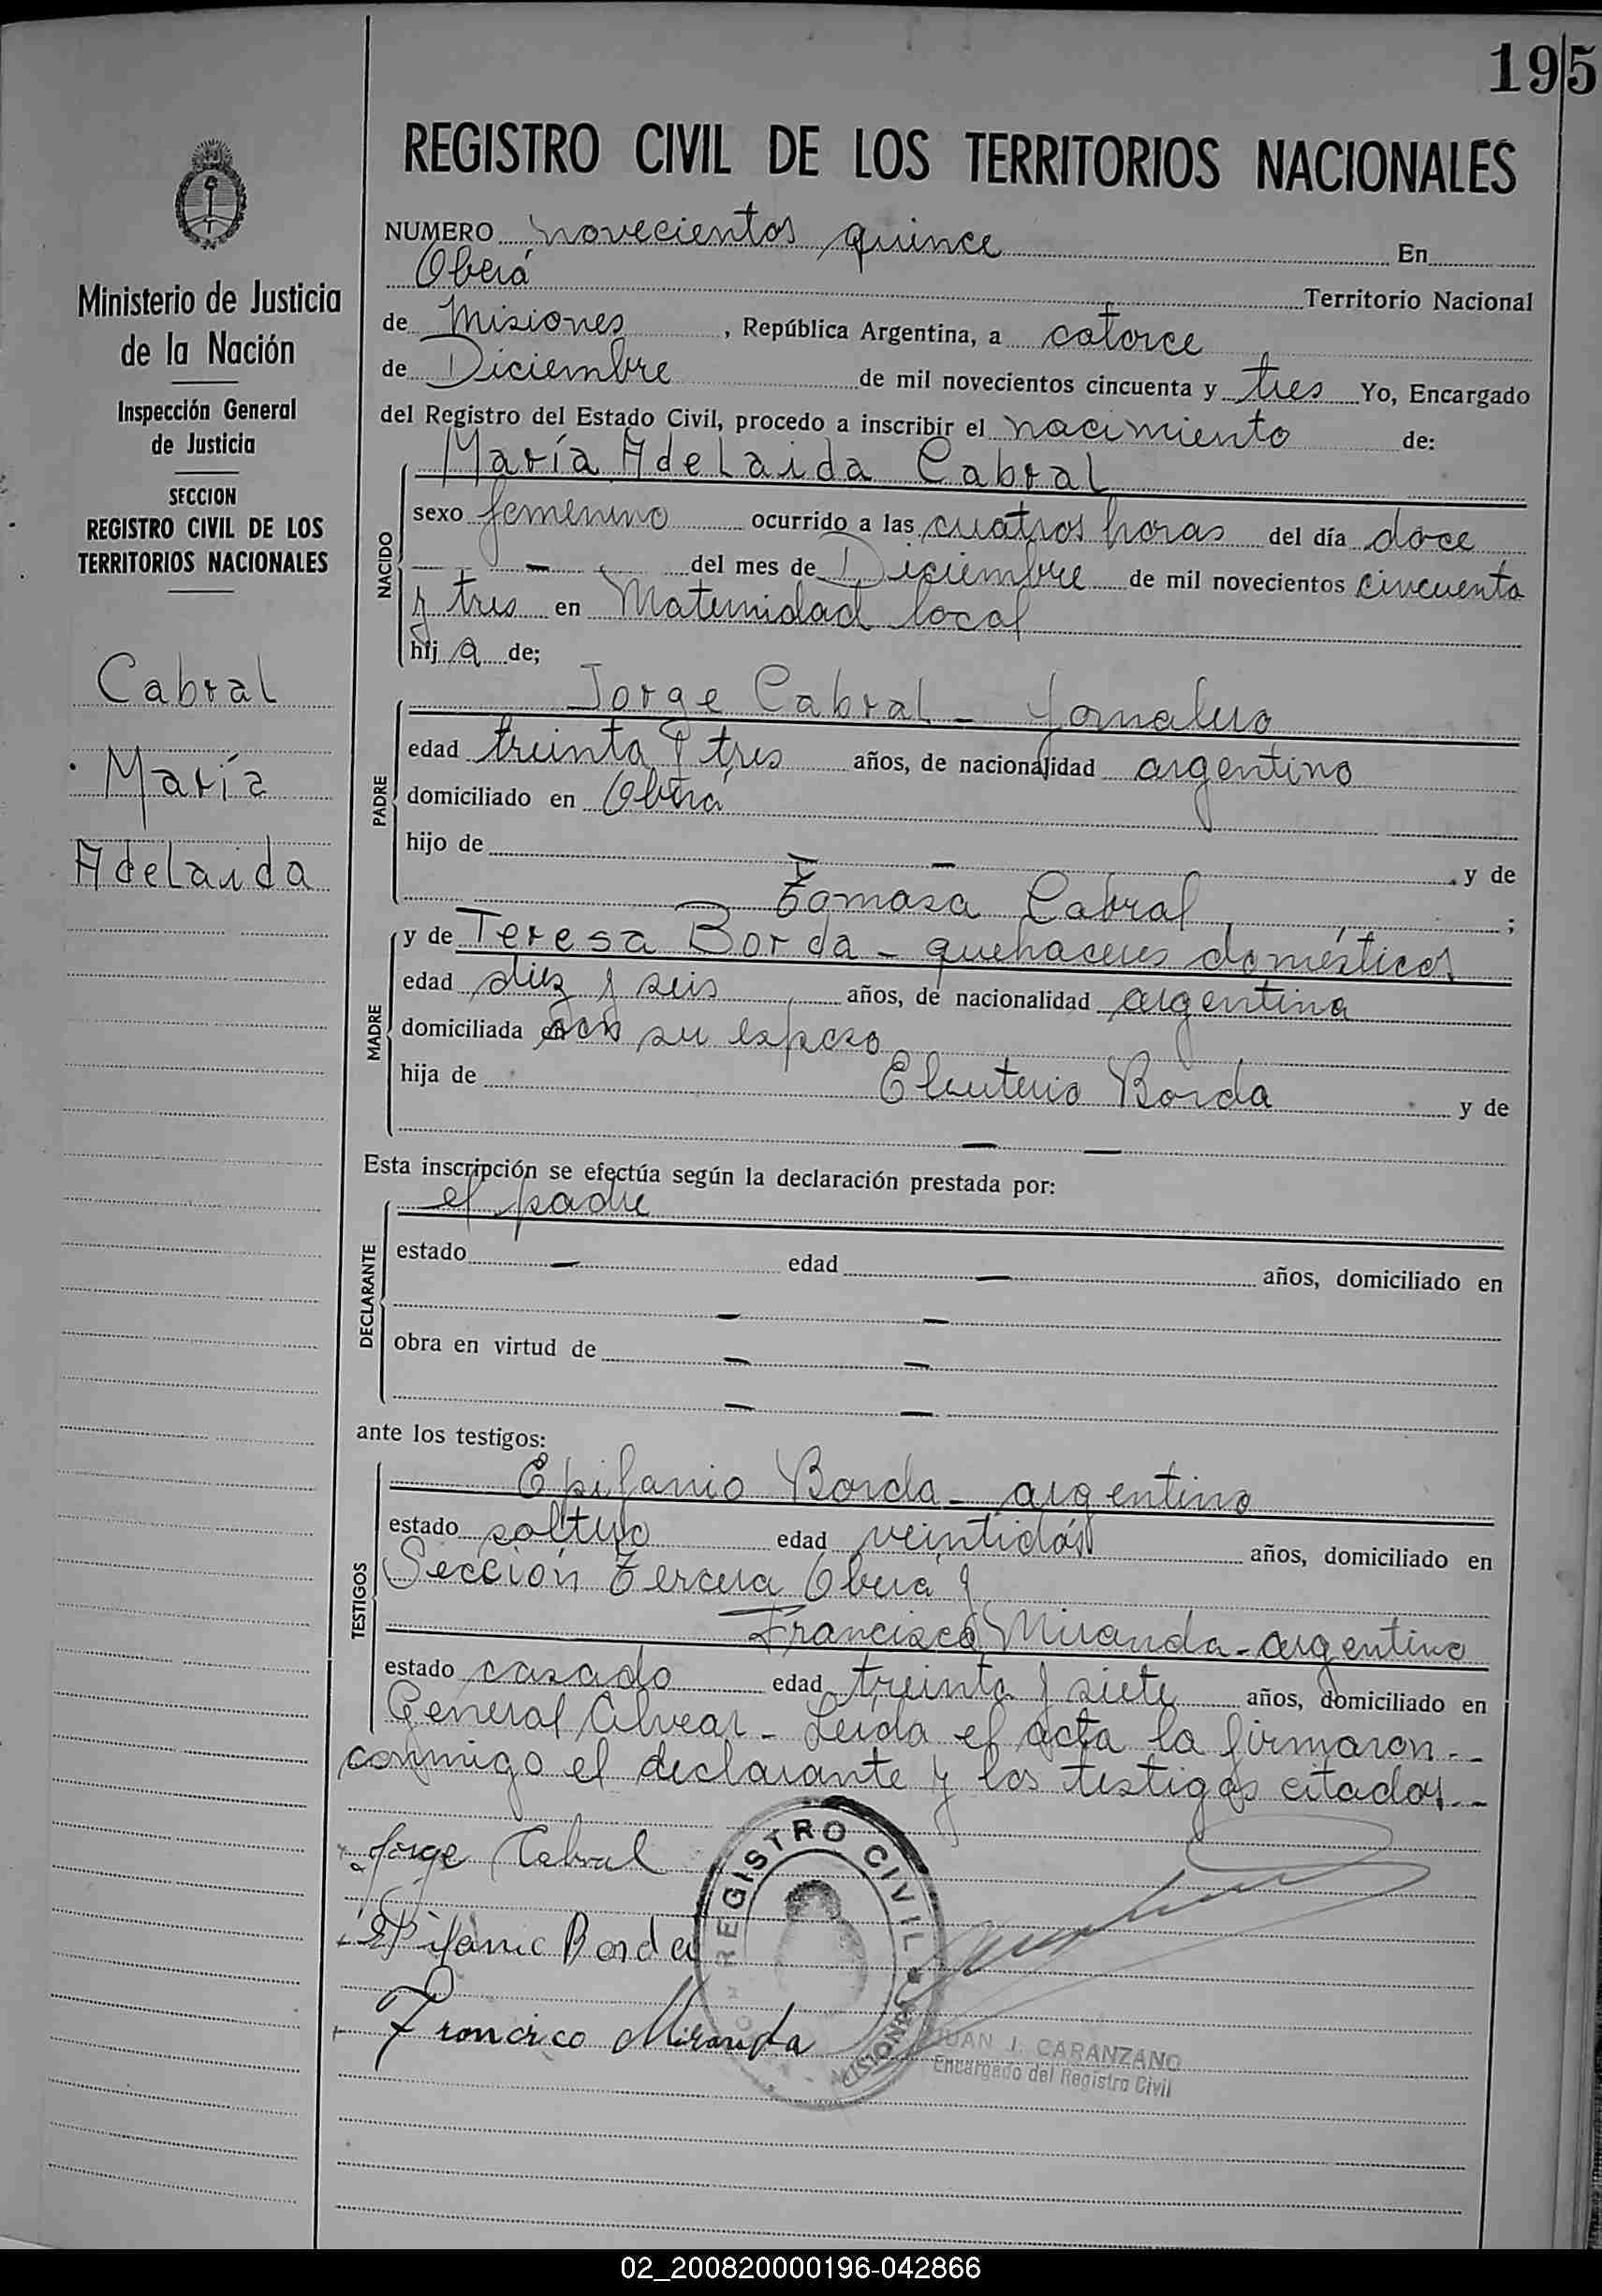 195
REGISTRO CIVIL DE LOS TERRITORIOS NACIONALES
Ministerio de Justicia
de la Nación
Inspección General
de Justicia
SECCION
REGISTRO CIVIL DE LOS
TERRITORIOS NACIONALES
Cabral
María
Adelaida
NUMERO novecientos quince En
Oberá Territorio Nacional
de Misiones, República Argentina, a catorce
de Diciembre de mil novecientos cincuenta y tres Yo, Encargado
del Registro del Estado Civil, procedo a inscribir el nacimiento de:
NACIDO
María Adelaida Cabral
sexo femenino ocurrido a las cuatros horas del día doce
— del mes de Diciembre de mil novecientos cincuenta
y tres en Maternidad local
hij a de;
PADRE
Jorge Cabral - Jornalero
edad treinta y tres años, de nacionalidad argentino
domiciliado en Oberá
hijo de — — y de
Tomasa Cabral ;
MADRE
y de Teresa Borda - quehaceres domésticos
edad diez y seis años, de nacionalidad argentina
domiciliada con su esposo
hija de Eleuterio Borda y de
— —
Esta inscripción se efectúa según la declaración prestada por:
DECLARANTE
el padre
estado — edad — años, domiciliado en
— —
obra en virtud de — —
— —
ante los testigos:
TESTIGOS
Epifanio Borda - argentino
estado soltero edad veintidós años, domiciliado en
Sección Tercera Oberá y
Francisco Miranda - argentino
estado casado edad treinta y siete años, domiciliado en
General Alvear - Leída el acta la firmaron --
conmigo el declarante y los testigos citados --
Jorge Cabral
Epifanio Borda
Francisco Miranda
REGISTRO CIVIL
MISIONES
JUAN J. CARANZANO
Encargado del Registro Civil
02_200820000196-042866